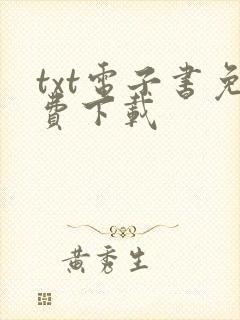 txt電子書免
費下載
黃秀生